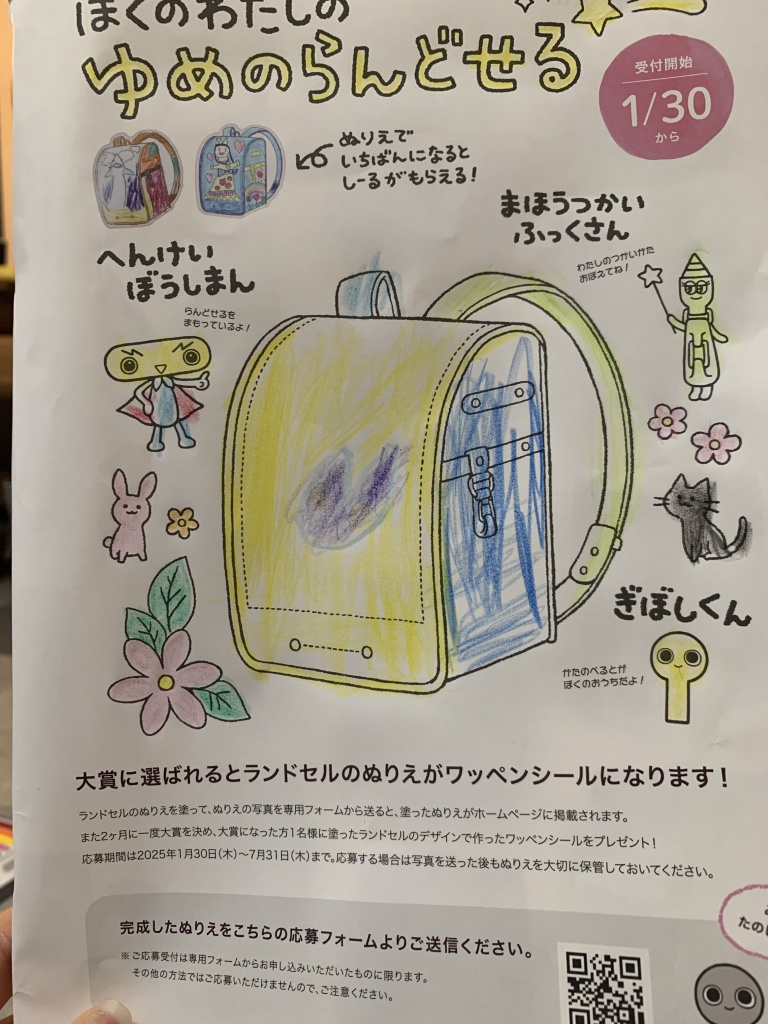 ぼくのわたしの
ゆめのらんどせる
受付開始
1/30
から
ぬりえで
いちばんになると
しーるがもらえる！
まほうつかい
ふっくさん
わたしのつかいかた
おぼえてね！
へんけい
ぼうしまん
らんどせるを
まもっているよ！
ぎぼしくん
かたのべるとが
ぼくのおうちだよ！
大賞に選ばれるとランドセルのぬりえがワッペンシールになります！
ランドセルのぬりえを塗って、ぬりえの写真を専用フォームから送ると、塗ったぬりえがホームページに掲載されます。
また2ヶ月に一度大賞を決め、大賞になった方1名様に塗ったランドセルのデザインで作ったワッペンシールをプレゼント！
応募期間は2025年1月30日(木)〜7月31日(木)まで。応募する場合は写真を送った後もぬりえを大切に保管しておいてください。
完成したぬりえをこちらの応募フォームよりご送信ください。
※ご応募受付は専用フォームからお申し込みいただいたものに限ります。
その他の方法ではご応募いただけませんので、ご注意ください。